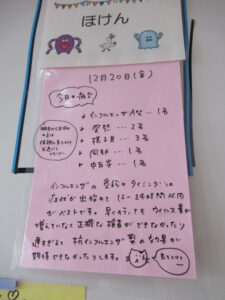 ほけん
12月20日(金)
今日の病欠
インフルエンザA型…1名
発熱…2名
様子見…3名
腹痛…1名
中耳炎…1名
インフルエンザの受診のタイミングは
症状が出始めて12~24時間以内
がベストです。早く行ってもウイルス量が
増えていなく正確な検査ができなかったり
遅すぎると抗インフルエンザ薬の効果が
期待できなかったりします。